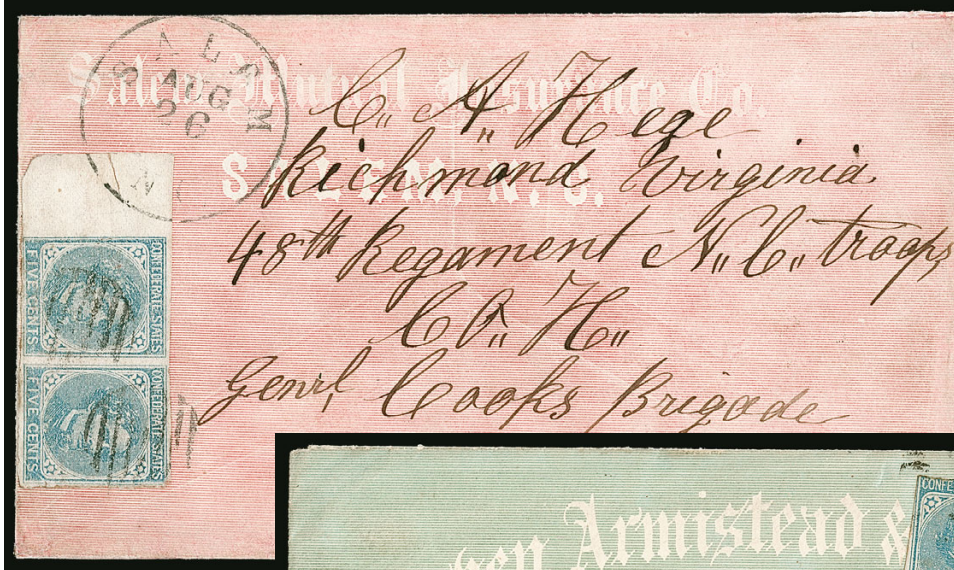 SALEM
AUG
26
N
Salem Mutual Insurance Co.
SALEM, N. C.
C,, A,, Hege
Richmond Virginia
48th Regament N,, C,, troops
CO,, H,,
Genrl, Cooks Brigade
CONFEDERATE STATES
FIVE CENTS
CONFEDERATE STATES
FIVE CENTS
Armistead &
CONFE